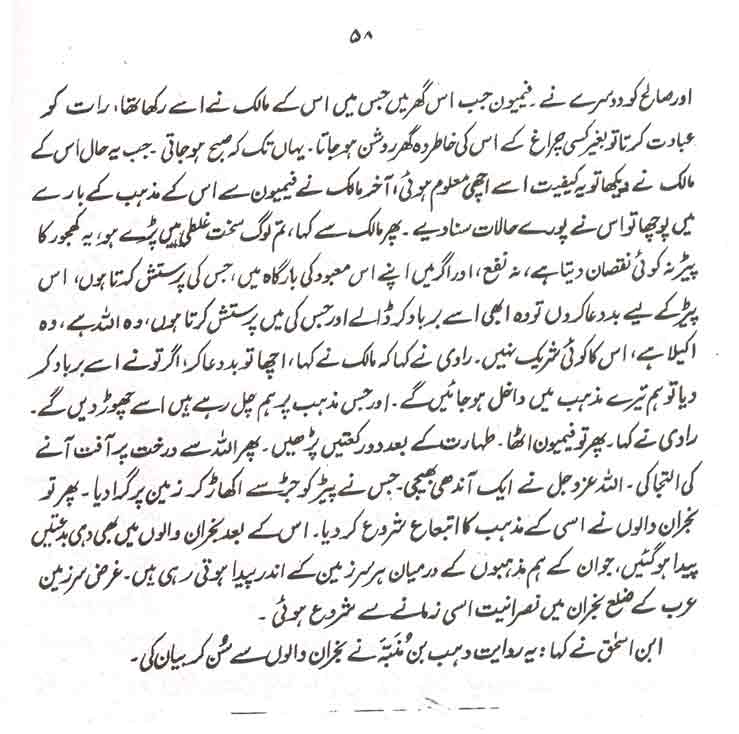 ۵۸
اور صالح کو دوسرے نے ۔ فیمیون جب اس گھر میں جس میں اس کے مالک نے اسے رکھا تھا، رات کو
عبادت کرتا تو بغیر کسی چراغ کے اس کی خاطر وہ گھر روشن ہو جاتا ۔ یہاں تک کہ صبح ہو جاتی ۔ جب یہ حال اس کے
مالک نے دیکھا تو یہ کیفیت اسے اچھی معلوم ہوئی، آخر مالک نے فیمیون سے اس کے مذہب کے بارے
میں پوچھا تو اس نے پورے حالات سنا دیے ۔ پھر مالک سے کہا، تم لوگ سخت غلطی میں پڑے ہو، یہ کھجور کا
پیڑ نہ کوئی نقصان دیتا ہے، نہ نفع، اور اگر میں اپنے اس معبود کی بارگاہ میں، جس کی پرستش کرتا ہوں، اس
پیڑ کے لیے بددعا کر دوں تو وہ ابھی اسے برباد کر ڈالے اور جس کی میں پرستش کرتا ہوں، وہ اللہ ہے، وہ
اکیلا ہے، اس کا کوئی شریک نہیں۔ راوی نے کہا کہ مالک نے کہا، اچھا تو بددعا کر، اگر تو نے اسے برباد کر
دیا تو ہم تیرے مذہب میں داخل ہو جائیں گے ۔ اور جس مذہب پر ہم چل رہے ہیں اسے چھوڑ دیں گے ۔
راوی نے کہا ۔ پھر تو فیمیون اٹھا ۔ طہارت کے بعد دو رکعتیں پڑھیں ۔ پھر اللہ سے درخت پر آفت آنے
کی التجا کی ۔ اللہ عزوجل نے ایک آندھی بھیجی ۔ جس نے پیڑ کو جڑ سے اکھاڑ کر زمین پر گرا دیا ۔ پھر تو
نجران والوں نے اسی کے مذہب کا اتباع شروع کر دیا ۔ اس کے بعد نجران والوں میں بھی وہی بدعتیں
پیدا ہو گئیں، جو ان کے ہم مذہبوں کے درمیان ہر سرزمین کے اندر پیدا ہوتی رہی ہیں ۔ غرض سرزمین
عرب کے ضلع نجران میں نصرانیت اسی زمانے سے شروع ہوئی ۔
ابن اسحٰق نے کہا : یہ روایت وہب بن مُنَبِّہ نے نجران والوں سے سُن کر بیان کی ۔